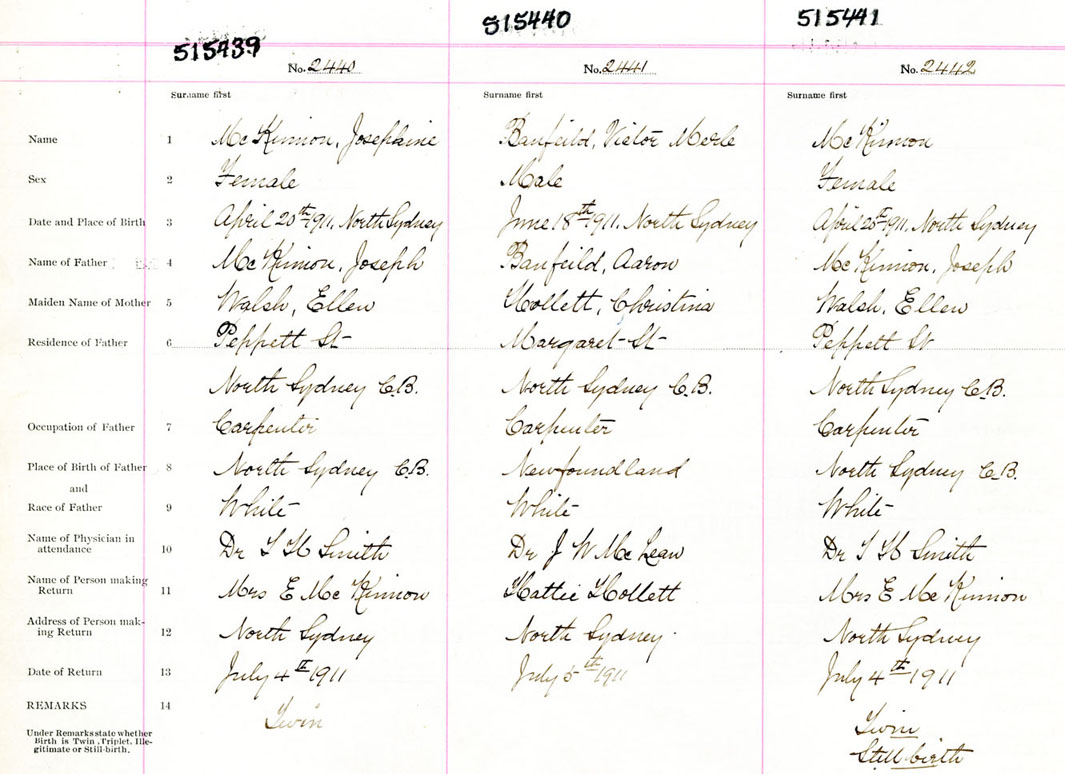 515439
515440
515441
No. 2440
No. 2441
No. 2442
Surname first
Surname first
Surname first
Name 1 McKinnon, Josephine Banfeild, Victor Merle McKinnon
Sex 2 Female Male Female
Date and Place of Birth 3 April 20th 1911, North Sydney June 18th 1911. North Sydney April 20th 1911. North Sydney
Name of Father 4 McKinnon, Joseph Banfeild, Aaron McKinnon, Joseph
Maiden Name of Mother 5 Walsh, Ellen Hollett, Christina Walsh, Ellen
Residence of Father 6 Peppett St Margaret St Peppett St
North Sydney C.B. North Sydney C.B. North Sydney C.B.
Occupation of Father 7 Carpenter Carpenter Carpenter
Place of Birth of Father 8 North Sydney C.B. Newfoundland North Sydney C.B.
and
Race of Father 9 White White White
Name of Physician in
attendance 10 Dr Smith Dr J W McLean Dr Smith
Name of Person making
Return 11 Mrs E McKinnon Hattie Hollett Mrs E McKinnon
Address of Person mak-
ing Return 12 North Sydney North Sydney North Sydney
Date of Return 13 July 4th 1911 July 5th 1911 July 4th 1911
REMARKS 14 Twin Twin
Under Remarks state whether
Birth is Twin, Triplet, Ille-
gitimate or Still-birth.
Still birth